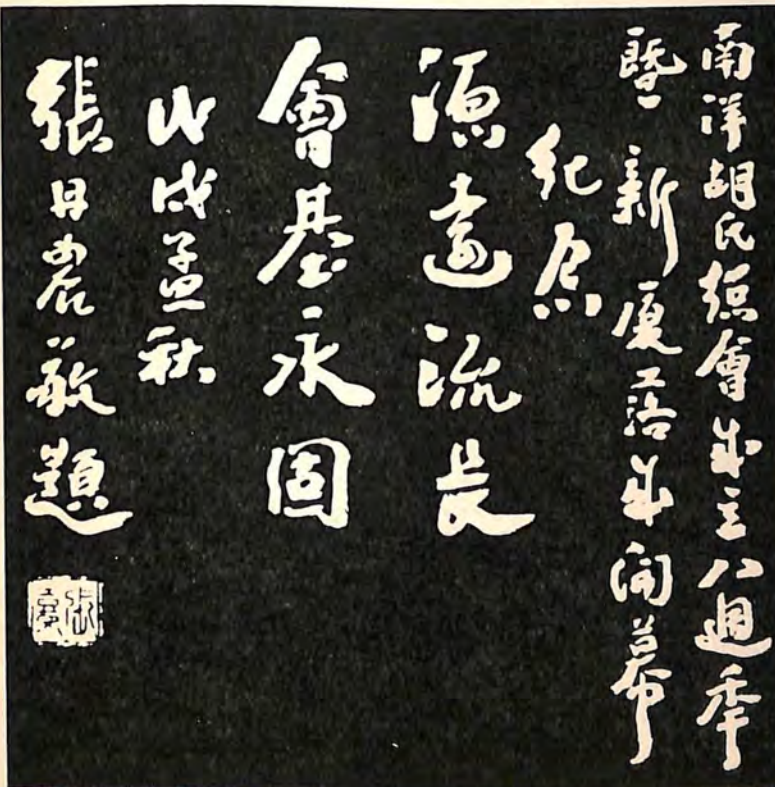 南洋胡氏總會成立八週年
暨新廈落成開幕
紀念
源遠流長
會基永固
戊戌孟秋
張日農敬題